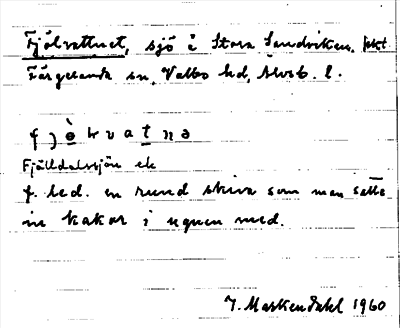 Fjölvattnet, sjö i Stora Sandviken, jakt
Färgelanda sn, Valbo hd, Älvsb. l.
f j ò̤ l v a t n ə
Fjälldalssjön ek
f. bed. en rund skiva som man satte
in kakor i ugnen med.
1960